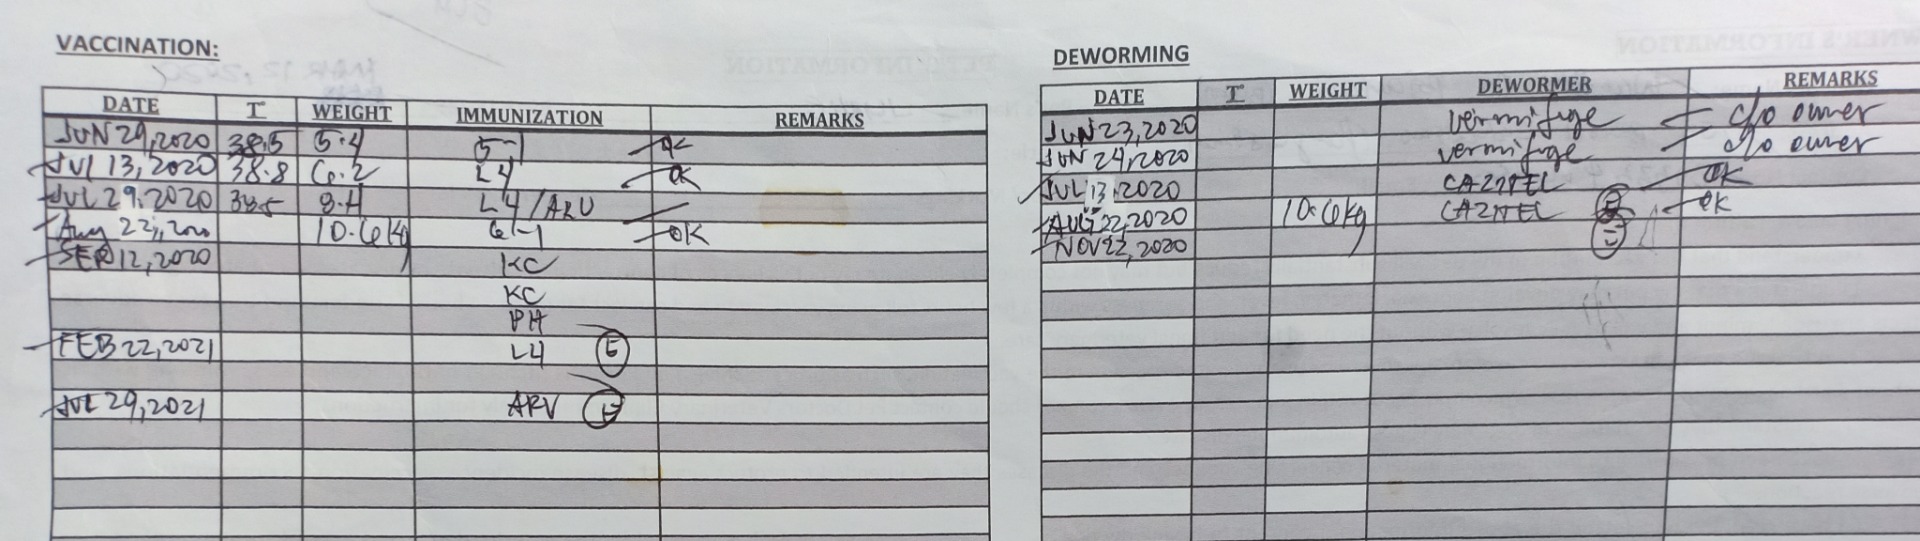 VACCINATION:
DATE T WEIGHT IMMUNIZATION REMARKS
JUN 29, 2020 38.5 5.4 5-1 OK
JUL 13, 2020 38.8 6.2 L4 OK
JUL 29, 2020 38.5 8.4 L4/ARV
Aug 22, 2020 10.6 kg 6-1 OK
SEP 12, 2020 KC
KC
PH
FEB 22, 2021 L4 E
JUL 29, 2021 ARV E
DEWORMING
DATE T WEIGHT DEWORMER REMARKS
JUN 23, 2020 vermifuge c/o owner
JUN 24, 2020 vermifuge c/o owner
JUL 13, 2020 CAZITEL OK
AUG 22, 2020 10.6 kg CAZITEL OK
NOV 22, 2020